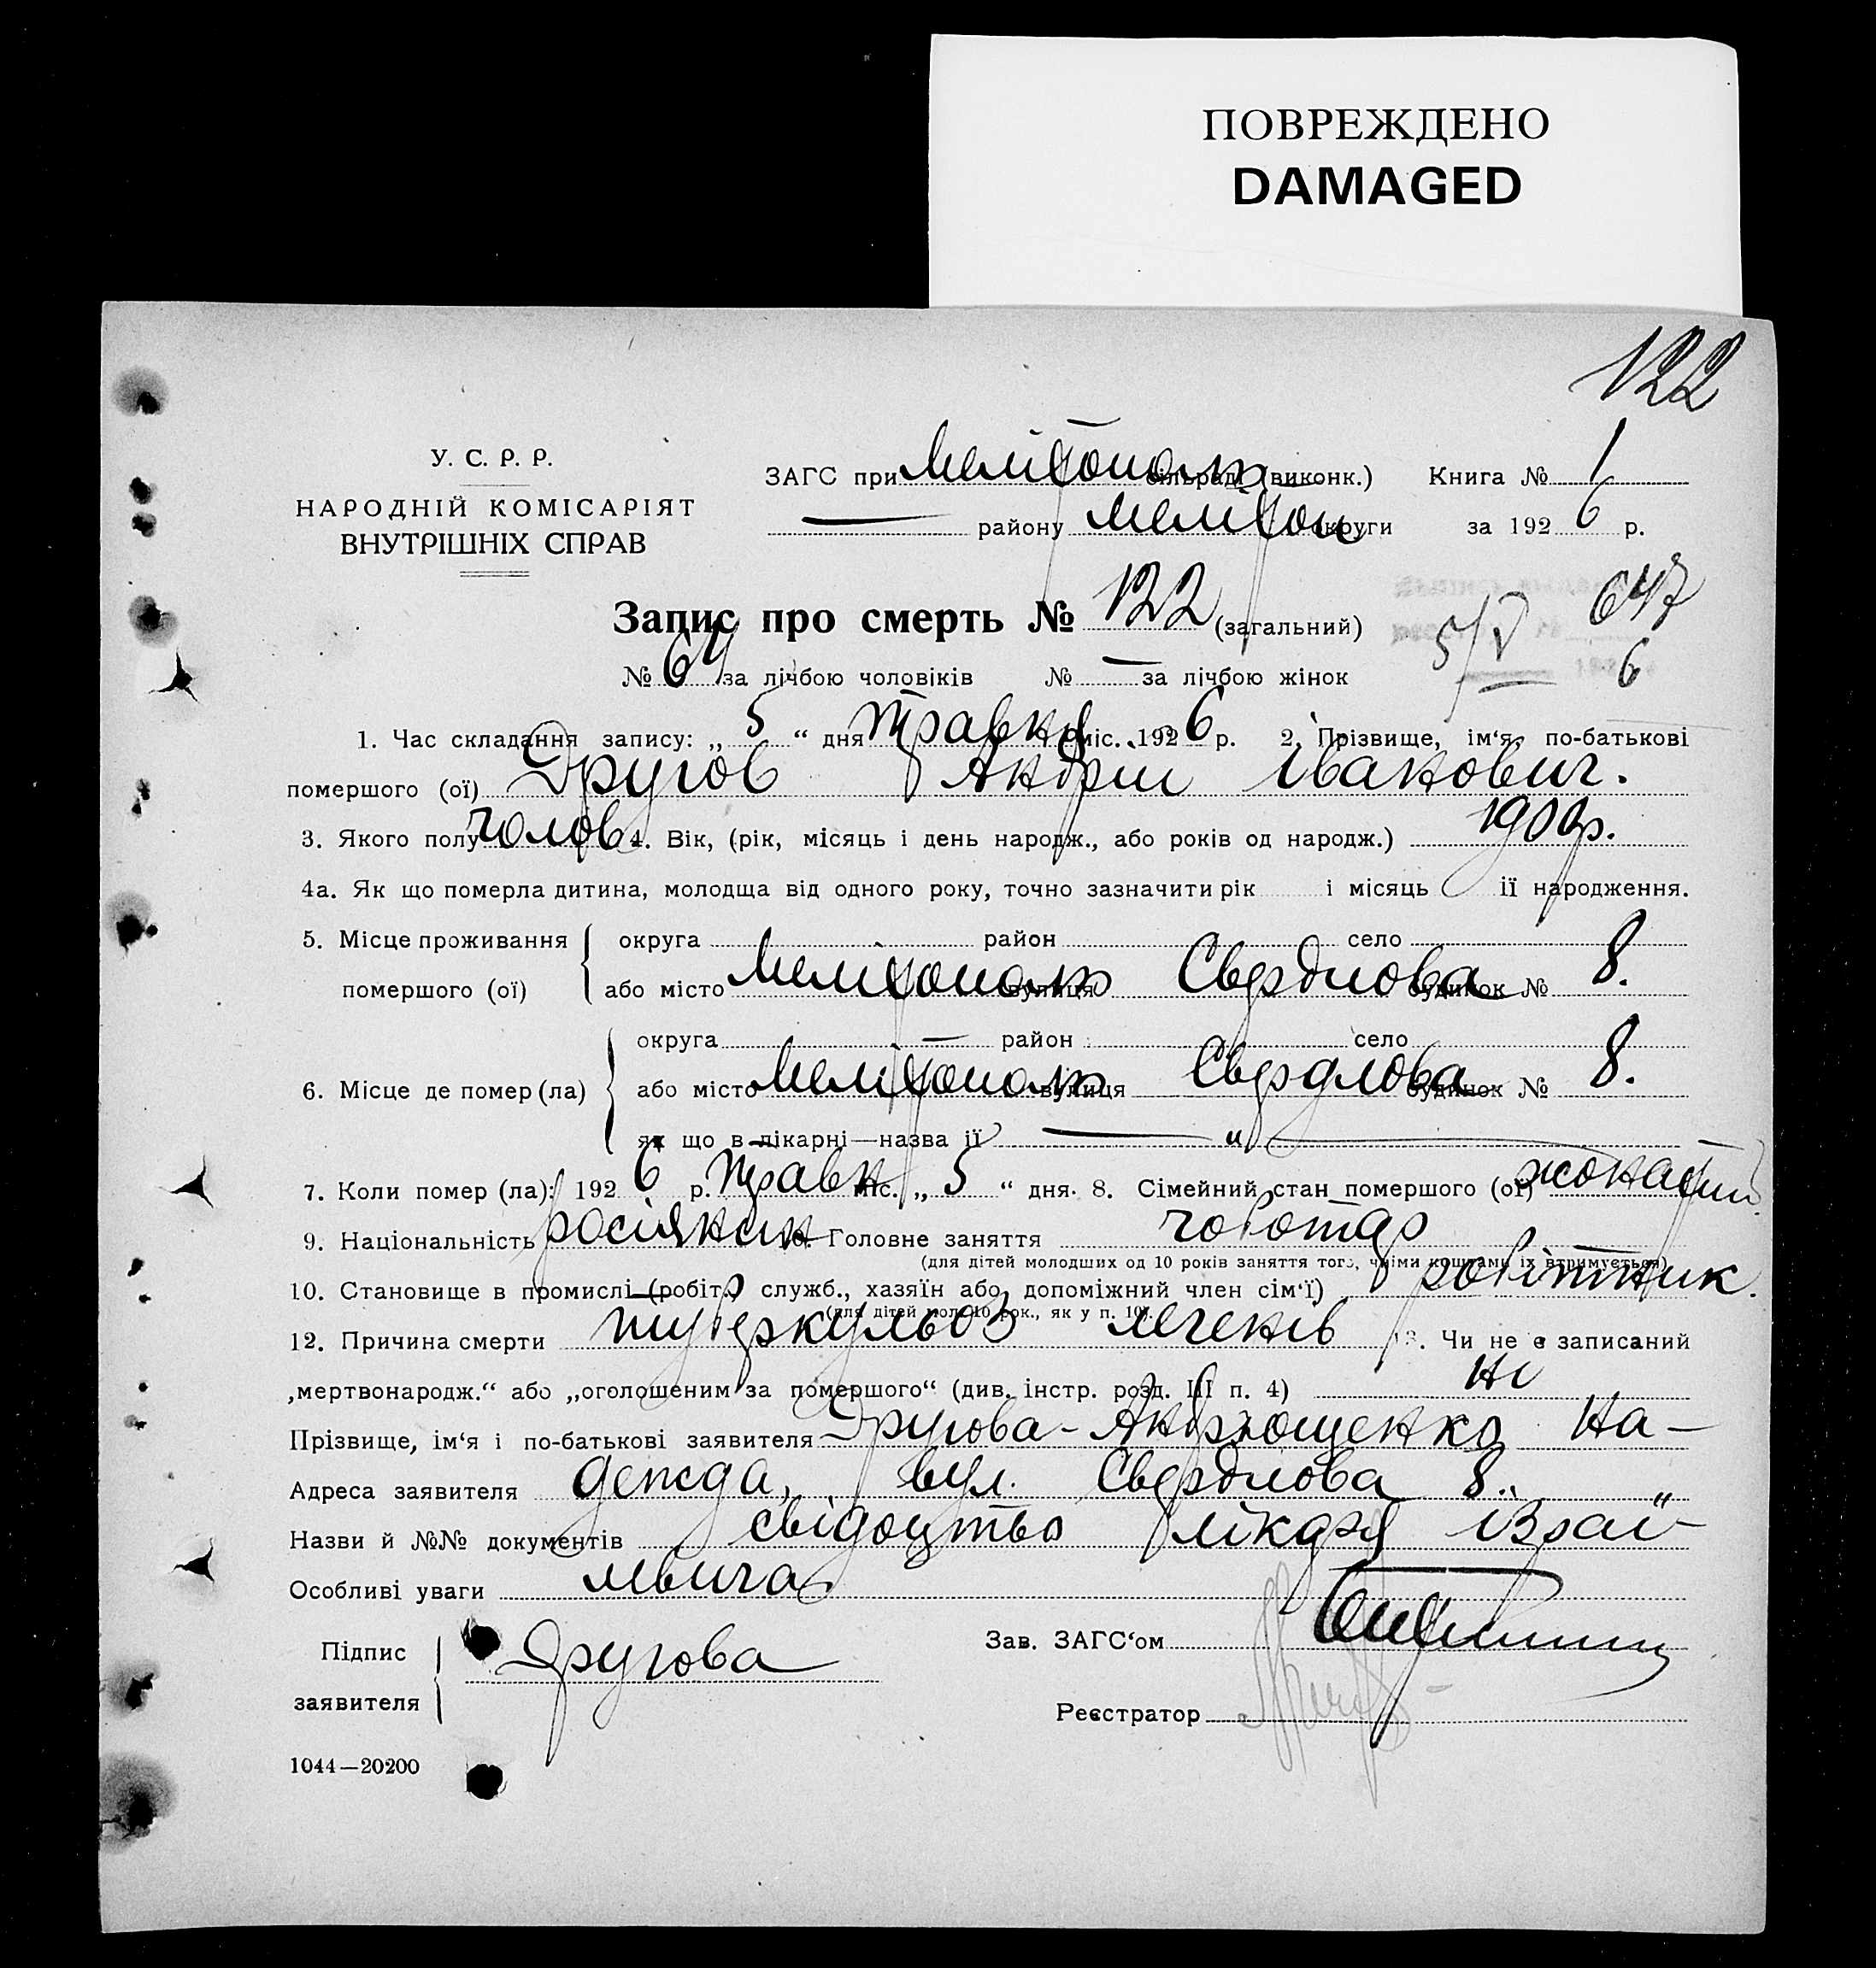 ПОВРЕЖДЕНО
DAMAGED
122
У. С. Р. Р.
НАРОДНІЙ КОМІСАРІЯТ
ВНУТРІШНІХ СПРАВ
ЗАГС при Мелітополь сільраді (виконк.) Книга № 1
— району Меліто́п округи за 1926 р.
Запис про смерть № 122 (загальний)
5/V 647
6
№ 64 за лічбою чоловіків № — за лічбою жінок
1. Час складання запису: „ 5 “ дня травня міс. 1926 р. 2. Прізвище, ім‘я, по-батькові
помершого (ої) Другов Андрій Іванович.
3. Якого полу чолов 4. Вік, (рік, місяць і день народж., або років од народж.) р.
4а. Як що померла дитина, молодща від одного року, точно зазначити рік і місяць її народження.
5. Місце проживання помершого (ої)
округа район село
або місто Мелітополь вулиця Свердлова будинок № 8.
6. Місце де помер (ла)
округа — район село
або місто Мелітополь вулиця Свердлова будинок № 8.
як що в лікарні—назва її — „ —
7. Коли помер (ла): 1926 р. травн міс. „ 5 “ дня. 8. Сімейний стан помершого (ої) жонатий
9. Національність росіянин 10. Головне заняття чоботар
(для дітей молодших од 10 років заняття того, чиїми коштами їх втримується)
10. Становище в промислі (робіт., служб., хазяїн або допоміжний член сім‘ї) робітник.
(для дітей мол. 10 рок., як у п. 10).
12. Причина смерти туберкульоз легенів 13. Чи не є записаний
„мертвонародж.“ або „оголошеним за помершого“ (див. інстр. розд. III п. 4) ні
Прізвище, ім‘я і по-батькові заявителя Другова-Андрющенко На-
Адреса заявителя дежда, вул. Свердлова 8.
Назви й №№ документів свідоцтво лікаря Ізраї-
Особливі уваги левича
Підпис заявителя Другова
Зав. ЗАГС‘ом
Реєстратор
1044—20200